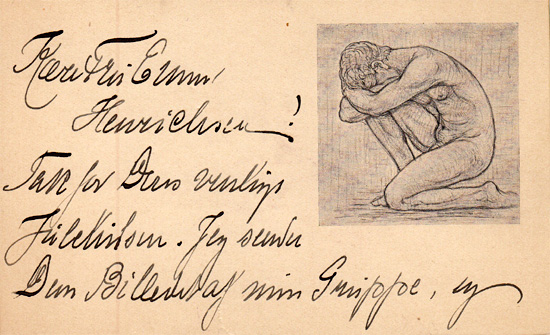 Kære Frk Emmi
Henrichsen!
Tak for Deres venlige
Julehilsen. Jeg sender
Dem Billedet af min Gruppe, og